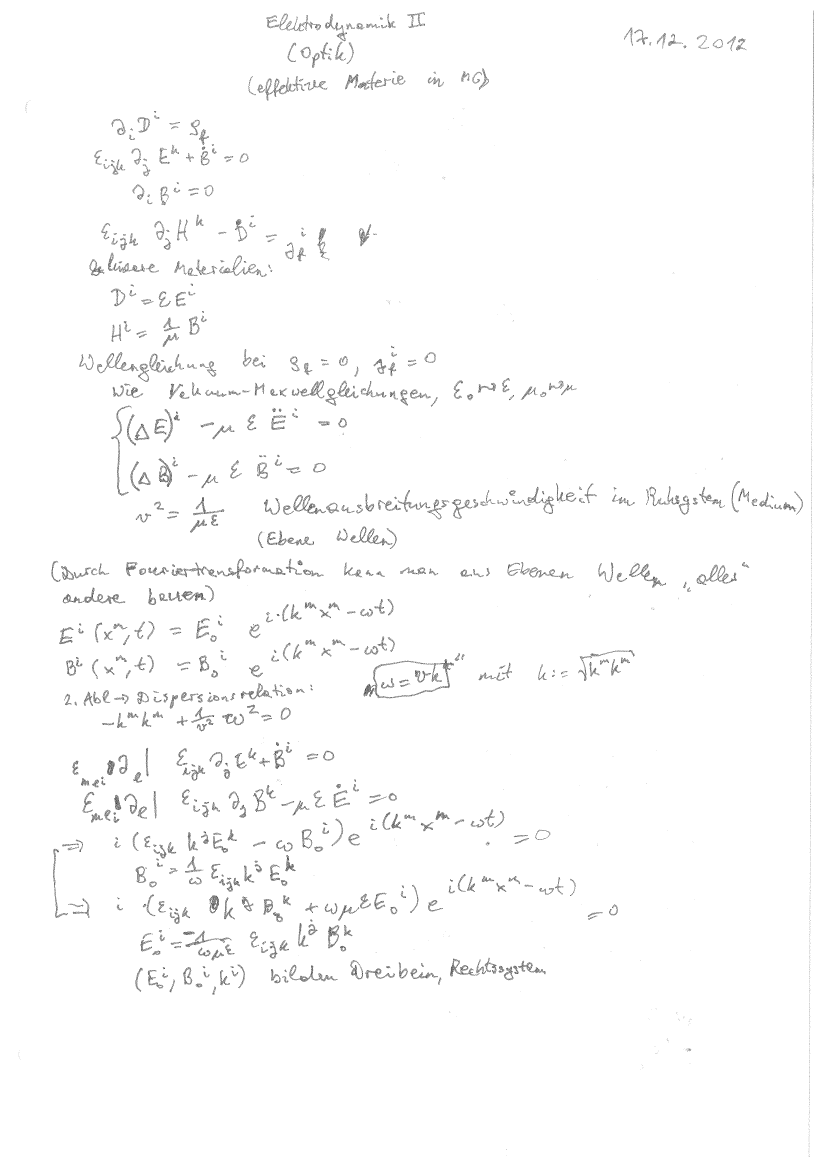 Elektrodynamik II
17.12.2012
(Optik)
(effektive Materie in MG)
∂_i D^i = ρ_f
ε_ijk ∂_j E^k + Ḃ^i = 0
∂_i B^i = 0
ε_ijk ∂_j H^k - Ḋ^i = j_f^i
lineare Materialien:
D^i = ε E^i
H^i = 1/μ B^i
Wellengleichung bei ρ_f = 0, j_f^i = 0
Wie Vakuum-Maxwellgleichungen, ε_0 ⇝ ε, μ_0 ⇝ μ
{ (Δ E)^i - μ ε Ë^i = 0
(Δ B)^i - μ ε B̈^i = 0
v^2 = 1/(με) Wellenausbreitungsgeschwindigkeit im Ruhsystem (Medium)
(Ebene Wellen)
(Durch Fouriertransformation kann man aus Ebenen Wellen „alles“
andere bauen)
E^i (x^m, t) = E_0^i e^{i·(k^m x^m - ωt)}
B^i (x^m, t) = B_0^i e^{i(k^m x^m - ωt)}
„ω = vk“ mit k := √(k^m k^m)
2. Abl → Dispersionsrelation:
-k^m k^m + 1/v^2 ω^2 = 0
ε_mli ∂_l | ε_ijk ∂_j E^k + Ḃ^i = 0
ε_mli ∂_l | ε_ijk ∂_j B^k - μ ε Ė^i = 0
⇒ i (ε_ijk k^j E_0^k - ω B_0^i) e^{i(k^m x^m - ωt)} = 0
B_0^i = 1/ω ε_ijk k^j E_0^k
⇒ i (ε_ijk k^j B_0^k + ωμε E_0^i) e^{i(k^m x^m - ωt)} = 0
E_0^i = -1/(ωμε) ε_ijk k^j B_0^k
(E_0^i, B_0^i, k^i) bilden Dreibein, Rechtssystem